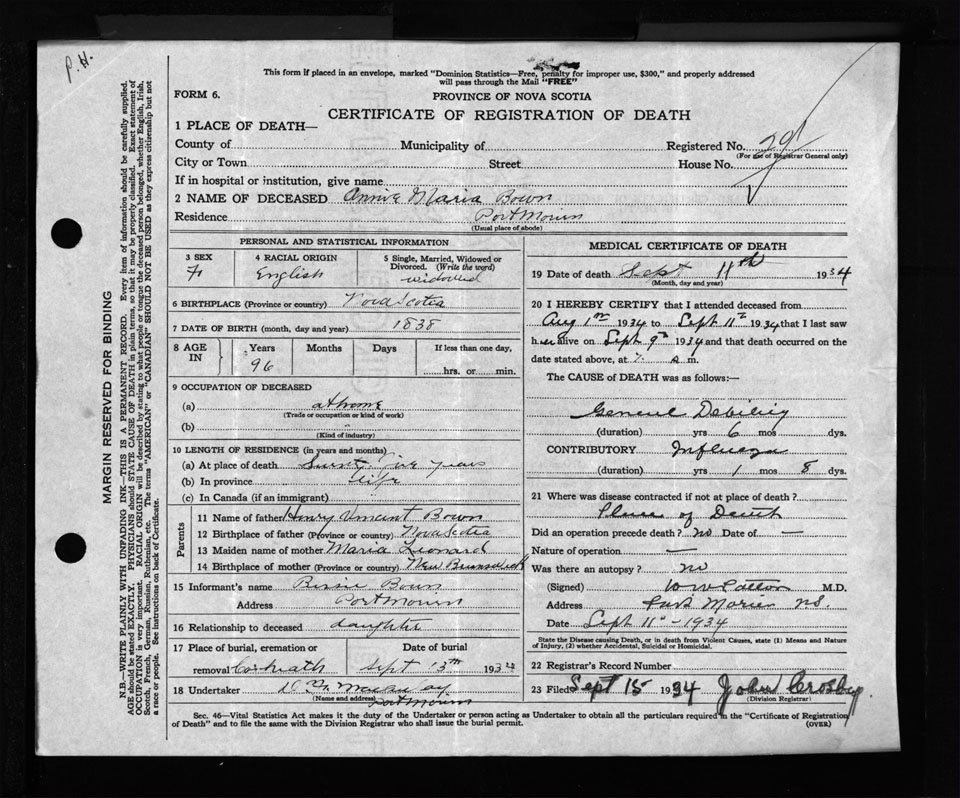 P. H.
This form if placed in an envelope, marked "Dominion Statistics—Free, penalty for improper use, $300," and properly addressed
will pass through the Mail "FREE"
FORM 6.
PROVINCE OF NOVA SCOTIA
CERTIFICATE OF REGISTRATION OF DEATH
1 PLACE OF DEATH—
County of Municipality of Registered No.
(For use of Registrar General only)
City or Town Street House No.
If in hospital or institution, give name
2 NAME OF DECEASED Annie Maria Bown
Residence Port Morien
(Usual place of abode)
MARGIN RESERVED FOR BINDING
N.B.—WRITE PLAINLY WITH UNFADING INK—THIS IS A PERMANENT RECORD. Every item of information should be carefully supplied.
AGE should be stated EXACTLY. PHYSICIANS should STATE CAUSE OF DEATH in plain terms, so that it may be properly classified. Exact statement of
OCCUPATION is very important. RACIAL ORIGIN will be described by stating to what people or tongue the deceased person belonged, whether English, Irish,
Scotch, French, German, Russian, Ruthenian, etc. The terms "AMERICAN" or "CANADIAN" SHOULD NOT BE USED as they express citizenship but not
a race or people. See instructions on back of Certificate.
PERSONAL AND STATISTICAL INFORMATION
3 SEX
F
4 RACIAL ORIGIN
English
5 Single, Married, Widowed or
Divorced. (Write the word)
widowed
6 BIRTHPLACE (Province or country) Nova Scotia
7 DATE OF BIRTH (month, day and year) 1838
8 AGE IN
Years Months Days If less than one day,
96 hrs. or min.
9 OCCUPATION OF DECEASED
(a) at home
(Trade or occupation or kind of work)
(b) "
(Kind of industry)
10 LENGTH OF RESIDENCE (in years and months)
(a) At place of death five years
(b) In province life
(c) In Canada (if an immigrant)
Parents
11 Name of father Henry Vincent Bown
12 Birthplace of father (Province or country) Nova Scotia
13 Maiden name of mother Maria Leonard
14 Birthplace of mother (Province or country) New Brunswick
15 Informant's name Bessie Bown
Address Port Morien
16 Relationship to deceased daughter
17 Place of burial, cremation or Date of burial
removal Sept 13th 1934
18 Undertaker
(Name and address) Port Morien
MEDICAL CERTIFICATE OF DEATH
19 Date of death Sept 11th 1934
(Month, day and year)
20 I HEREBY CERTIFY that I attended deceased from
Aug 1st 1934 to Sept 11th 1934 that I last saw
her alive on Sept 9th 1934 and that death occurred on the
date stated above, at a. m.
The CAUSE of DEATH was as follows:—
General Debility
(duration) yrs 6 mos dys.
CONTRIBUTORY Influenza
(duration) yrs 1 mos 8 dys.
21 Where was disease contracted if not at place of death?
Place of Death
Did an operation precede death? no Date of —
Nature of operation —
Was there an autopsy? no
(Signed) W W Patton M.D.
Address Port Morien N.S.
Date Sept 11th - 1934
State the Disease causing Death, or in death from Violent Causes, state (1) Means and Nature
of Injury, (2) whether Accidental, Suicidal or Homicidal.
22 Registrar's Record Number
23 Filed Sept 15 1934 John Crosby
(Division Registrar)
Sec. 46—Vital Statistics Act makes it the duty of the Undertaker or person acting as Undertaker to obtain all the particulars required in the "Certificate of Registration
of Death" and to file the same with the Division Registrar who shall issue the burial permit.
(OVER)